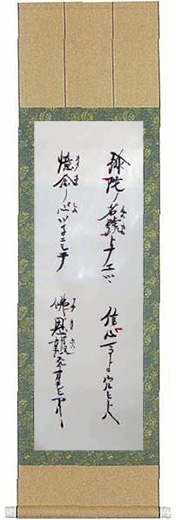 弥陀ノ名號トナエツヽ 信心マコトニウルヒトハ
憶念ノ心ツネニシテ 佛恩報ズルオモヒアリ